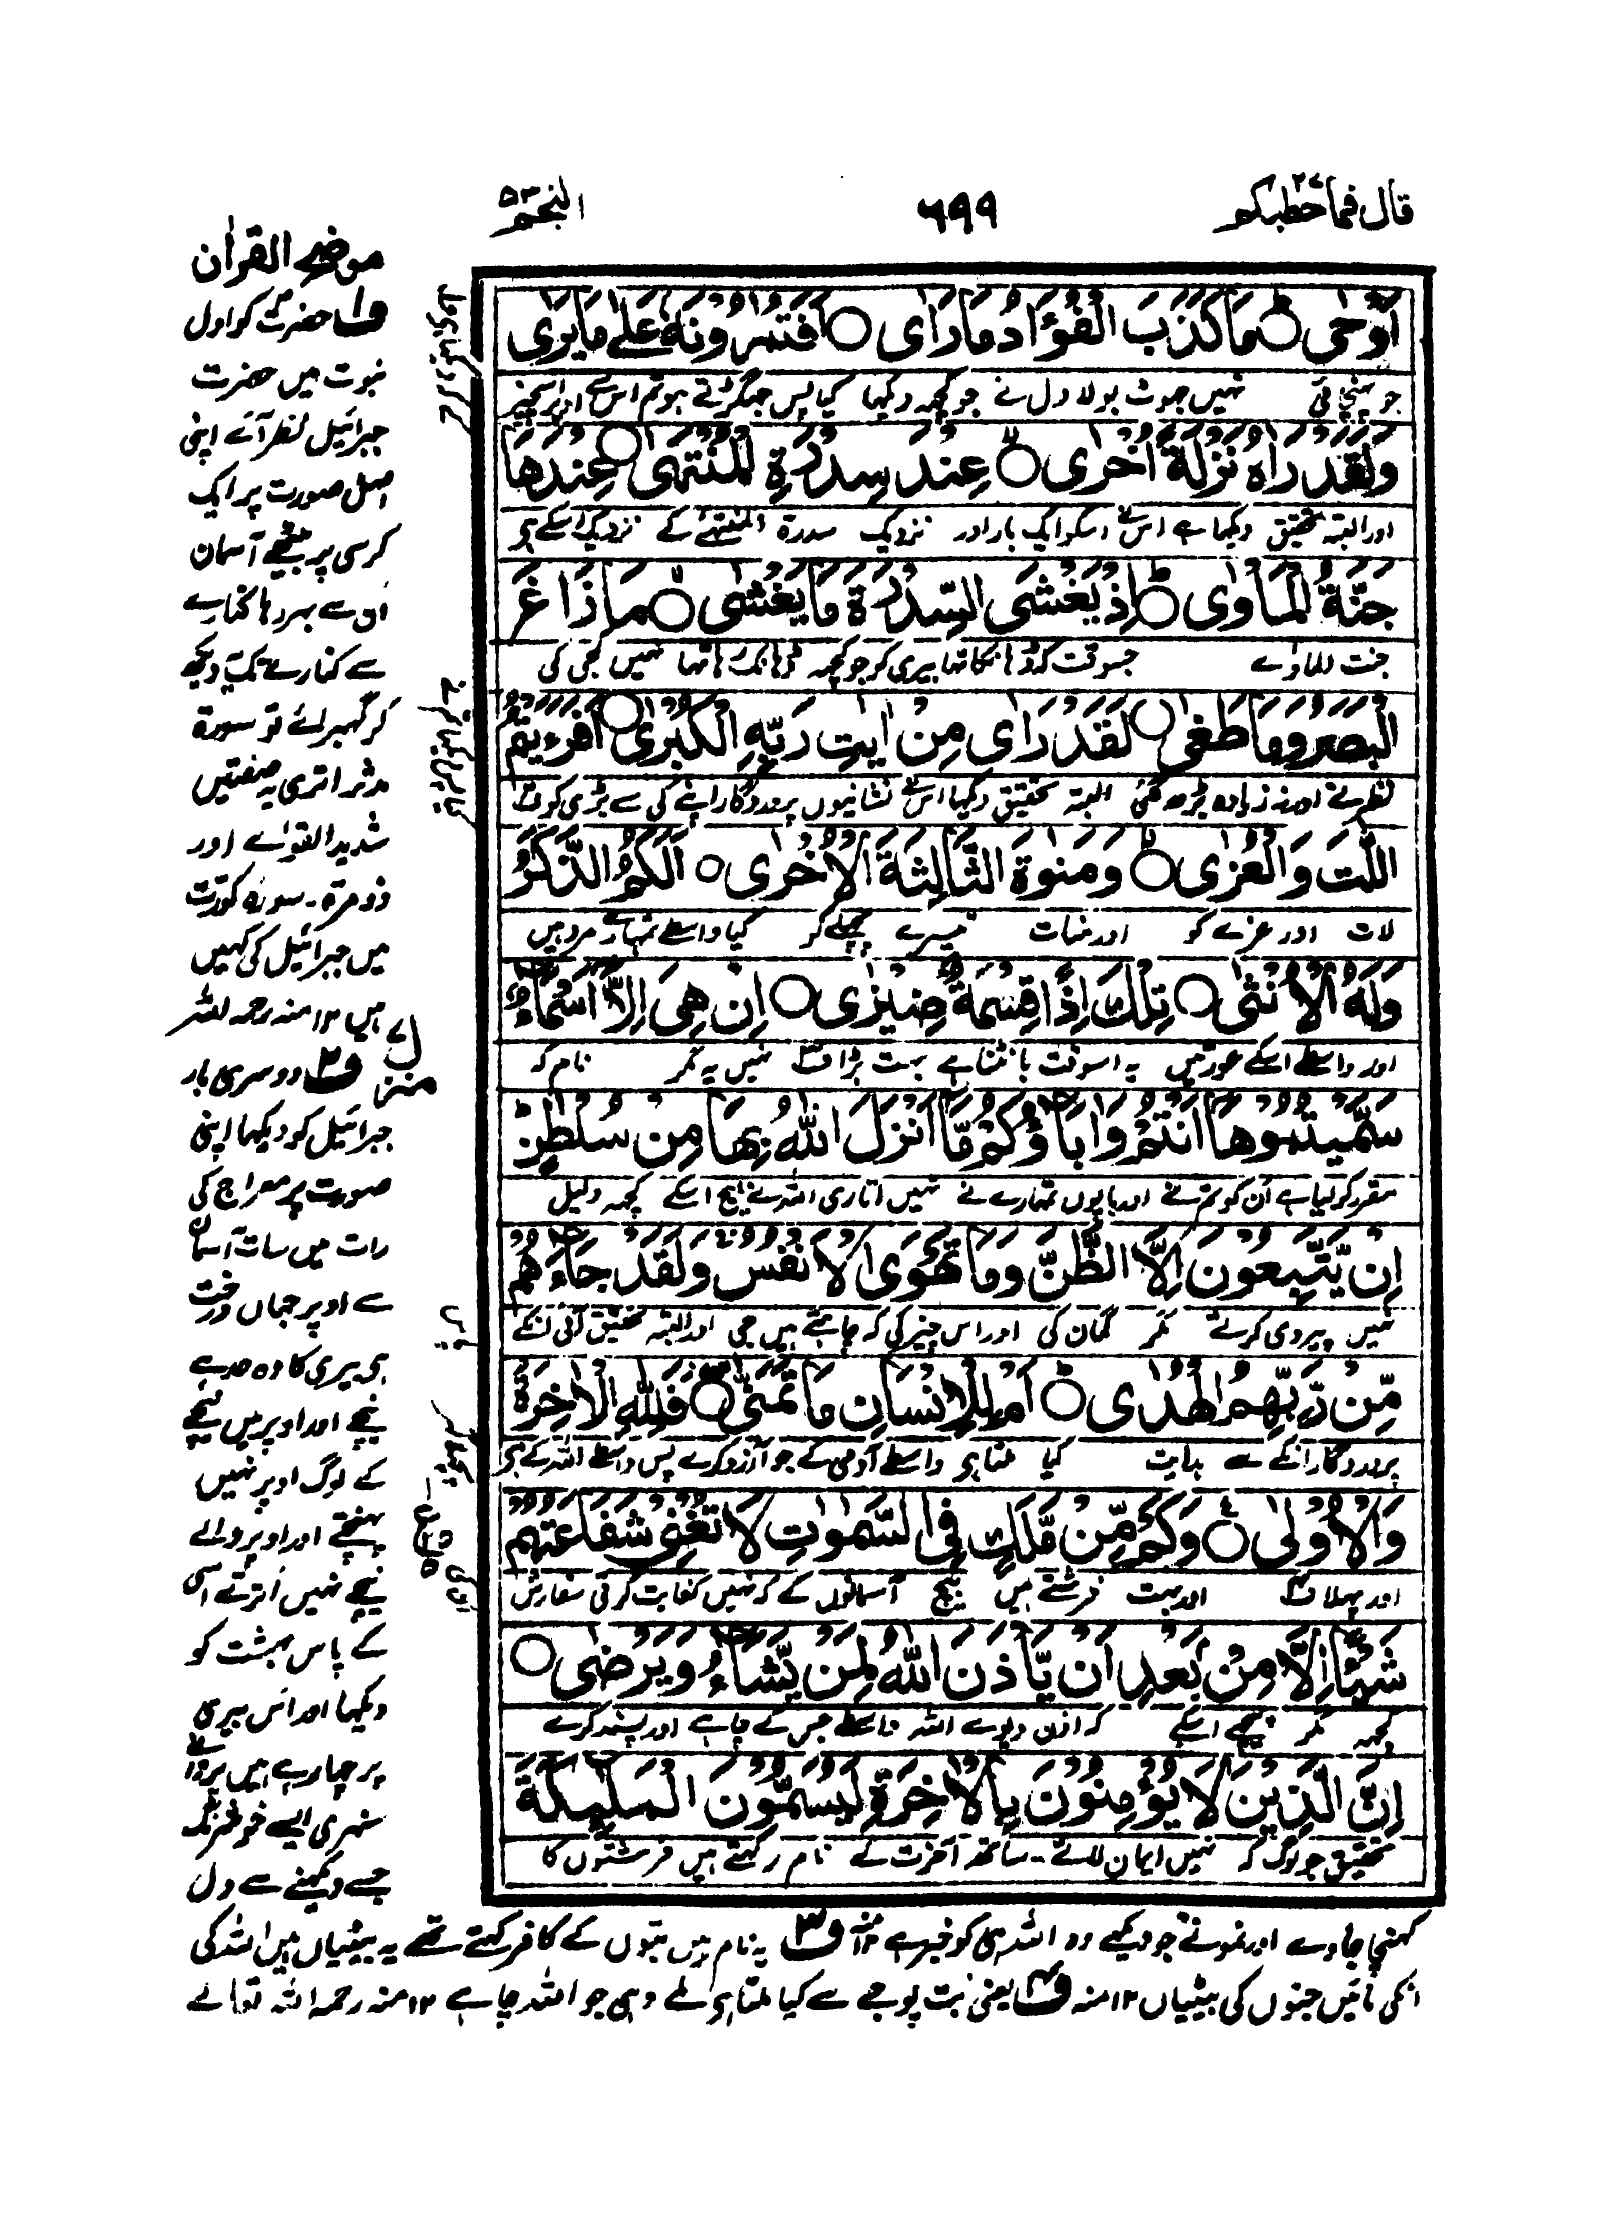 قال فما خطبکم ۲۷
۶۹۹
النجم ۵۳
اَوْحٰی ○ مَا کَذَبَ الْفُؤَادُ مَا رَاٰی ○ اَفَتُمٰرُوْنَهٗ عَلٰی مَا یَرٰی
نہیں جھوٹ بولا دل نے جو کچھ دیکھا کیا پس جھگڑتے ہو تم اس سے
وَلَقَدْ رَاٰهُ نَزْلَةً اُخْرٰی ○ عِنْدَ سِدْرَةِ الْمُنْتَهٰی ○ عِنْدَهَا
اور البتہ تحقیق دیکھا ہے اس نے اسکو ایک بار اور نزدیک سدرة المنتہٰے کے نزدیک اسکے ہی
جَنَّةُ الْمَاْوٰی ○ اِذْ یَغْشَی السِّدْرَةَ مَا یَغْشٰی ○ مَا زَاغَ
جنت الماوٰے جسوقت کہ ڈھانکا تھا بیری کو جو کچھ ڈھانک رہا تھا نہیں کجی کی
الْبَصَرُ وَمَا طَغٰی ○ لَقَدْ رَاٰی مِنْ اٰیٰتِ رَبِّهِ الْکُبْرٰی ○ اَفَرَءَیْتُمُ
نظر نے اور نہ زیادہ بڑھ گئی البتہ تحقیق دیکھا اس نے نشانیوں پروردگار اپنے کی سے بڑی کو
اللّٰتَ وَالْعُزّٰی ○ وَمَنٰوةَ الثَّالِثَةَ الْاُخْرٰی ○ اَلَکُمُ الذَّکَرُ
لات اور عزے کو اور منات تیسرے پچھلے کو کیا واسطے تمہارے مرد ہیں
وَلَهُ الْاُنْثٰی ○ تِلْكَ اِذًا قِسْمَةٌ ضِیْزٰی ○ اِنْ هِیَ اِلَّا اَسْمَآءٌ
اور واسطے اسکے عورتیں یہ اسوقت بانٹنا ہے بہت بڑا نہیں یہ مگر نام کہ
سَمَّیْتُمُوْهَا اَنْتُمْ وَاٰبَآؤُکُمْ مَّا اَنْزَلَ اللّٰهُ بِهَا مِنْ سُلْطٰنٍ
مقرر کر لیا ہے اُن کو تم نے اور باپوں تمہارے نے نہیں اتاری اللہ نے بیچ اسکے کچھ دلیل
اِنْ یَّتَّبِعُوْنَ اِلَّا الظَّنَّ وَمَا تَهْوَی الْاَنْفُسُ وَلَقَدْ جَآءَهُمْ
نہیں پیروی کرتے مگر گمان کی اور اس چیز کی کہ چاہتے ہیں جی اور البتہ تحقیق آئی انکے
مِّنْ رَّبِّهِمُ الْهُدٰی ○ اَمْ لِلْاِنْسَانِ مَا تَمَنّٰی ○ فَلِلّٰهِ الْاٰخِرَةُ
پروردگار انکے سے ہدایت کیا ملتا ہی واسطے آدمی کے جو آرزو کرے پس واسطے اللہ کے ہی
وَالْاُوْلٰی ○ وَکَمْ مِّنْ مَّلَكٍ فِی السَّمٰوٰتِ لَا تُغْنِیْ شَفَاعَتُهُمْ
اور پہلا اور بہت فرشتے ہیں بیچ آسمانوں کے کہ نہیں کفایت کرتی سفارش
شَیْئًا اِلَّا مِنْ بَعْدِ اَنْ یَّاْذَنَ اللّٰهُ لِمَنْ یَّشَآءُ وَیَرْضٰی ○
کچھ مگر پیچھے اسکے کہ اذن دیوے اللہ واسطے جس کے چاہے اور پسند کرے
اِنَّ الَّذِیْنَ لَا یُؤْمِنُوْنَ بِالْاٰخِرَةِ لَیُسَمُّوْنَ الْمَلٰٓئِکَةَ
تحقیق جو لوگ کہ نہیں ایمان لاتے - ساتھ آخرت کے نام رکھتے ہیں فرشتوں کا
موضح القراٰن
ف۱ حضرت کو اول
نبوت میں حضرت
جبرائیل نظر آئے اپنی
اصل صورت پر ایک
کرسی پر بیٹھے آسمان
ان سے بھر رہا کنارے
سے کنارے تک دیکھ
کر گھبرائے تو سورة
مدثر اتری یہ صفتیں
شدید القوٰے اور
ذو مرة - سورہ کورت
میں جبرائیل کی کہیں
ہیں ۱۲ منہ رحمہ اللہ
منزل ۷
ف۲ دوسری بار
جبرائیل کو دیکھا اپنی
صورت پر معراج کی
رات میں سات آسمان
سے اوپر جہاں درخت
ہی بیری کا وہ حد ہے
نیچے اور اوپر میں نیچے
کے لوگ اوپر نہیں
پہنچتے اور اوپر والے
نیچے نہیں اُترتے اسی
کے پاس بہشت کو
دیکھا اور اُس بیری
پر چھا رہے ہیں پروانے
سنہری ایسے خوش رنگ
جسے دیکھنے سے دل
کھنچا جاوے اور نمونے جو دیکھے وہ اللہ ہی کو خبر ہے ۱۲ منہ ف۳ یہ نام ہیں بتوں کے کافر کہتے تھے یہ بیٹیاں ہیں اللہ کی
انکی مائیں جنوں کی بیٹیاں ۱۲ منہ ف۴ یعنی بت پوجے سے کیا ملتا ہی ملے وہی جو اللہ چاہے ۱۲ منہ رحمہ اللہ تعالے